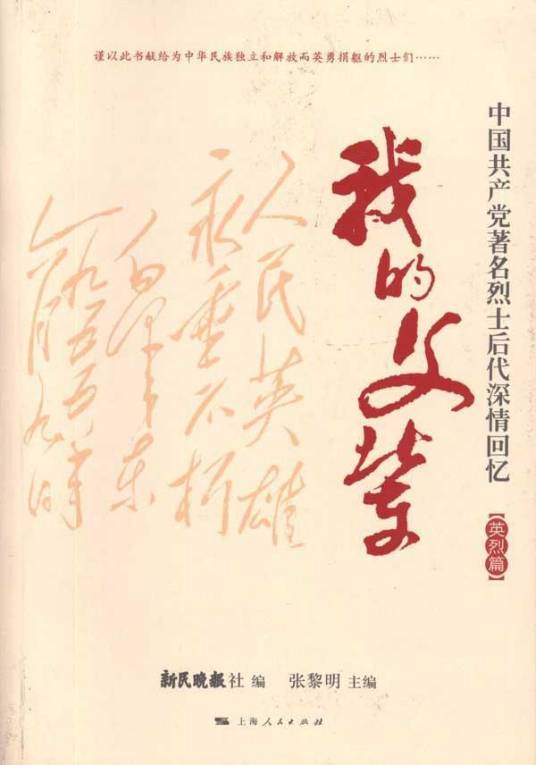 谨以此书献给为中华民族独立和解放而英勇捐躯的烈士们……
中国共产党著名烈士后代深情回忆
【英烈篇】
我的父辈
人民英雄
永垂不朽
毛泽东
新民晚报社 编 张黎明 主编
上海人民出版社